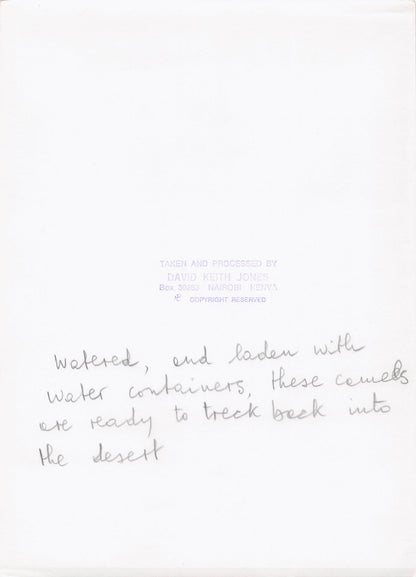 TAKEN AND PROCESSED BY
DAVID KEITH JONES
Box NAIROBI KENYA
© COPYRIGHT RESERVED
watered, and laden with
water containers, these camels
are ready to treck back into
the desert